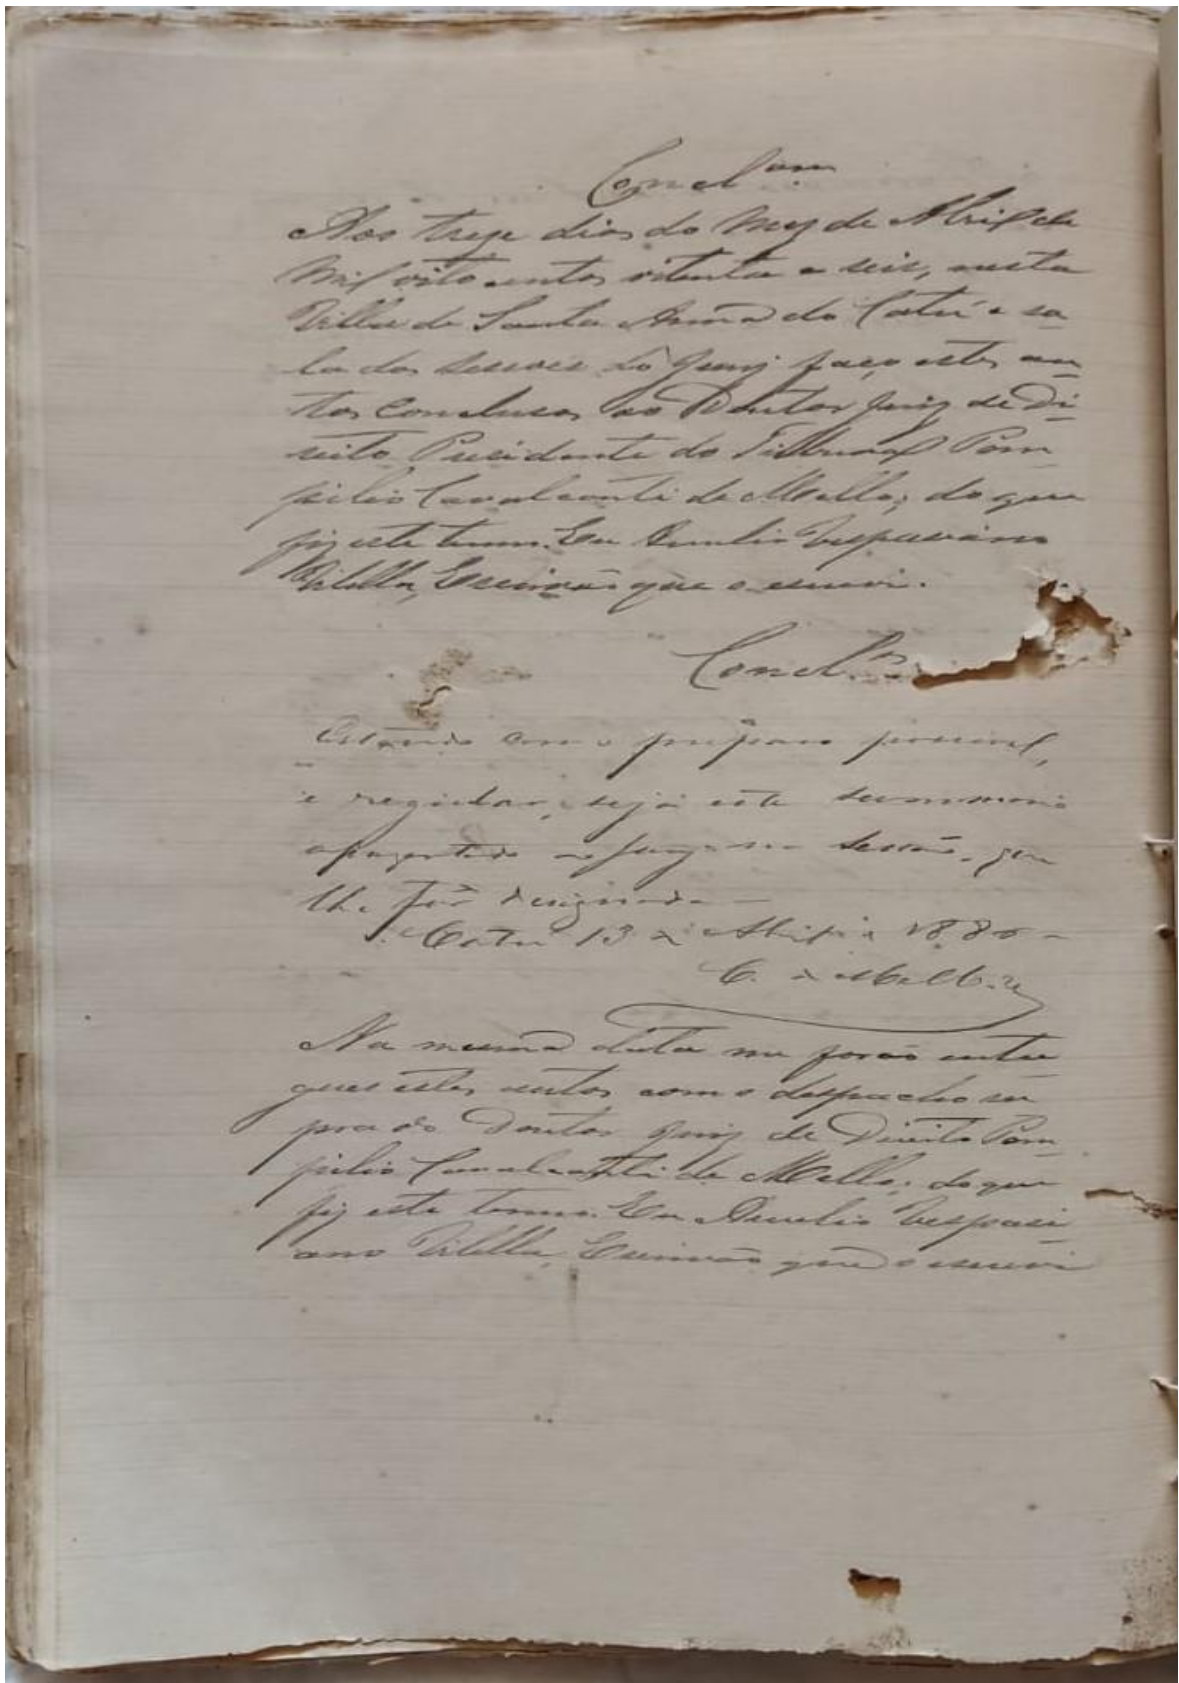 Concl.am
Aos treze dias do mez de Abril de
mil oito centos oitenta e seis, nesta
Villa de Santa Anna do Catú e sa-
la das sessões do Jury faço estes au-
tos conclusos ao Doutor Juiz de Di-
reito Presidente do Tribunal Pom-
pilio Cavalcanti de Mello; do que
fiz este termo. Eu Aurelio Vespasiano
Vilella, Escrivão que o escrevi.
Concl.os
Estando com o preparo
e regular, seja este summario
apresentado ao jury na sessão, que
lhe fôr designada
Catú 13 de Abril de 1886
C. de Mello
Na mesma data me forão entre
gues estes autos com o despacho su
pra do Doutor Juiz de Direito Pom-
pilio Cavalcanti de Mello; do que
fiz este termo. Eu Aurelio Vespasi-
ano Vilella, Escrivão que o escrevi